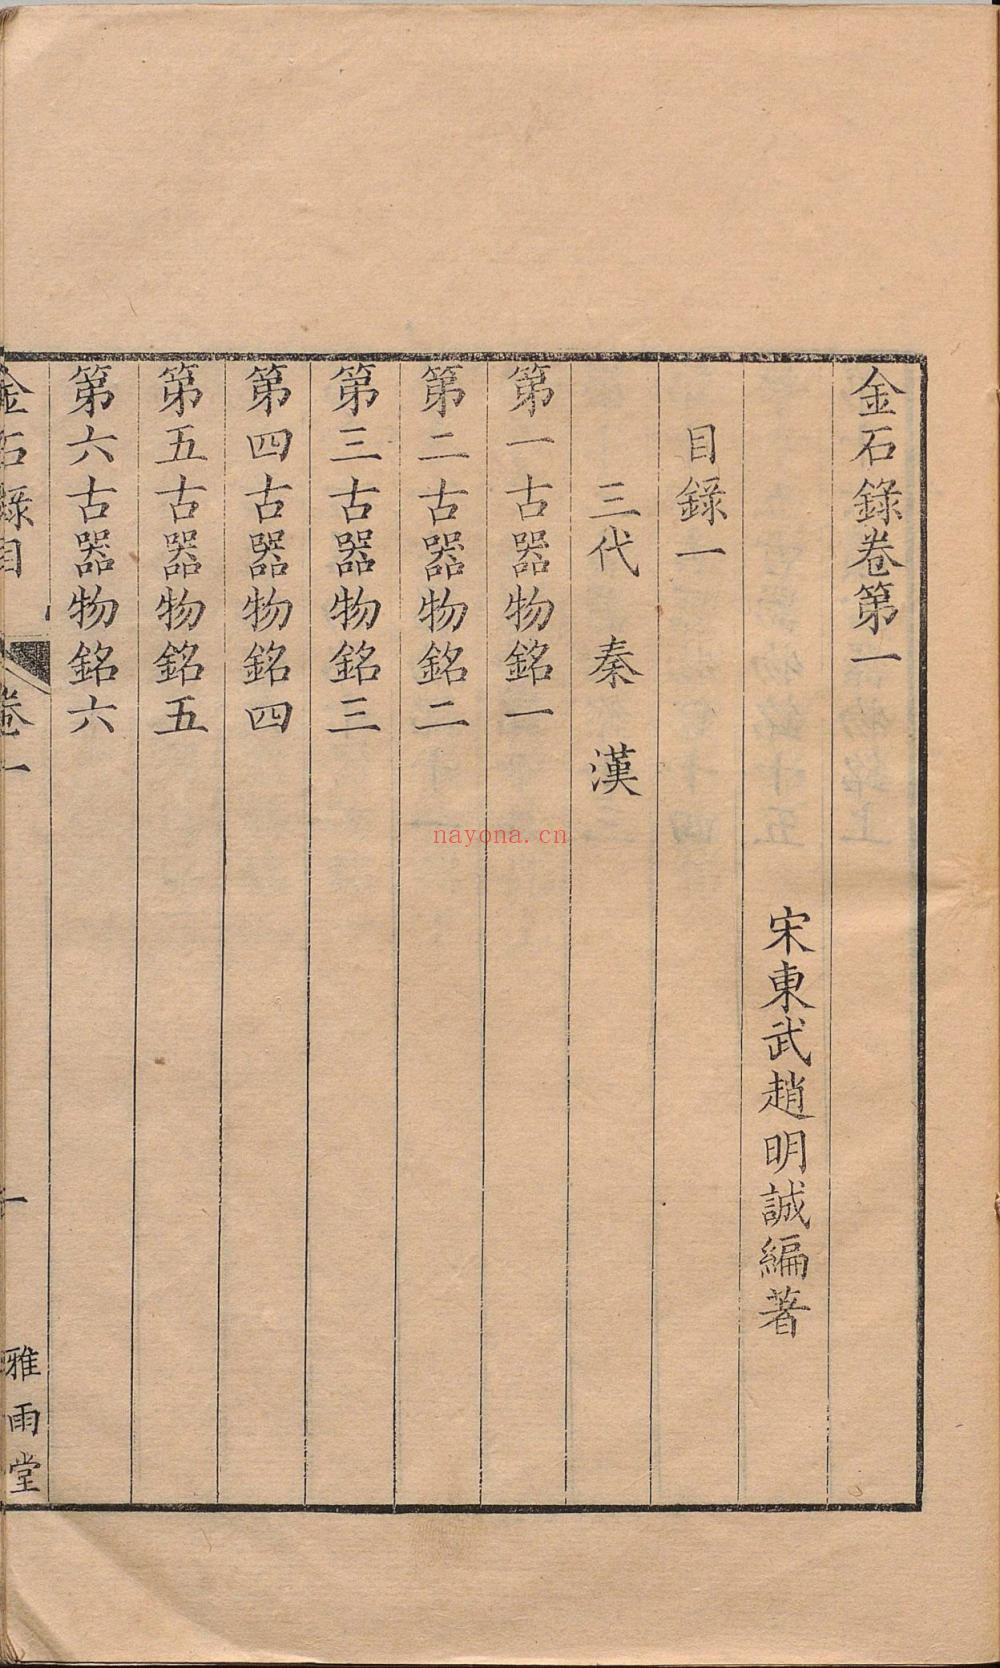 金石錄卷第一
宋東武趙明誠編著
目錄一
三代 秦 漢
第一古器物銘一
第二古器物銘二
第三古器物銘三
第四古器物銘四
第五古器物銘五
第六古器物銘六
金石錄目 卷一 一 雅雨堂
nayona.cn